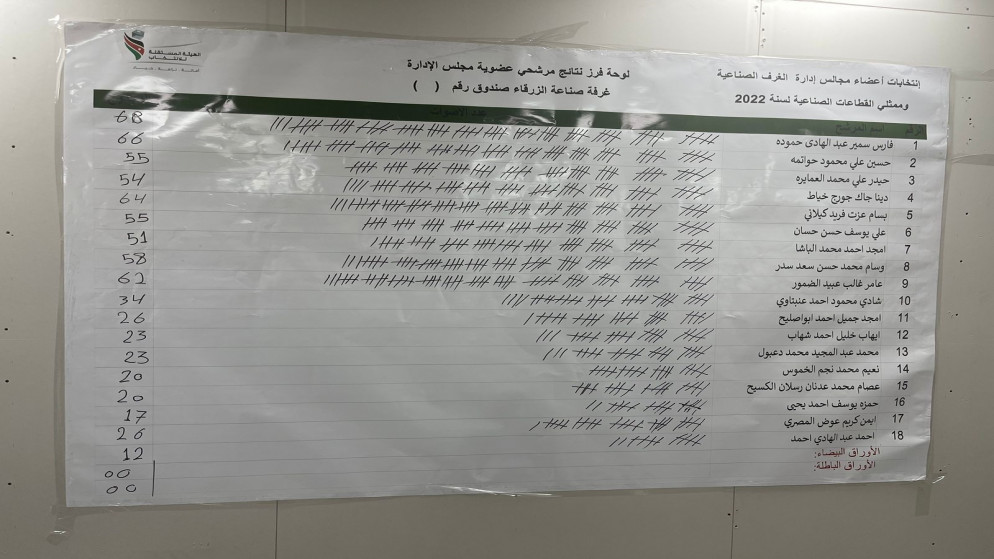 الهيئة المستقلة
للانتخاب
انتخابات أعضاء مجالس إدارة الغرف الصناعية
وممثلي القطاعات الصناعية لسنة 2022
لوحة فرز نتائج مرشحي عضوية مجلس الإدارة
غرفة صناعة الزرقاء صندوق رقم ( )
الرقم اسم المرشح عدد الأصوات
1 فارس سمير عبد الهادى حموده 68
2 حسين علي محمود حواتمه 66
3 حيدر علي محمد العمايره 55
4 دينا جاك جورج خياط 54
5 بسام عزت فريد كيلاني 64
6 علي يوسف حسن حسان 55
7 امجد احمد محمد الباشا 51
8 وسام محمد حسن سعد سدر 58
9 عامر غالب عبيد الضمور 62
10 شادي محمود احمد عنبتاوي 34
11 امجد جميل احمد ابواصليح 26
12 ايهاب خليل احمد شهاب 23
13 محمد عبد المجيد محمد دعبول 23
14 نعيم محمد نجم الخموس 20
15 عصام محمد عدنان رسلان الكسيح 20
16 حمزه يوسف احمد يحيى 17
17 ايمن كريم عوض المصري 26
18 احمد عبد الهادي احمد 12
الأوراق البيضاء: 00
الأوراق الباطلة: 00